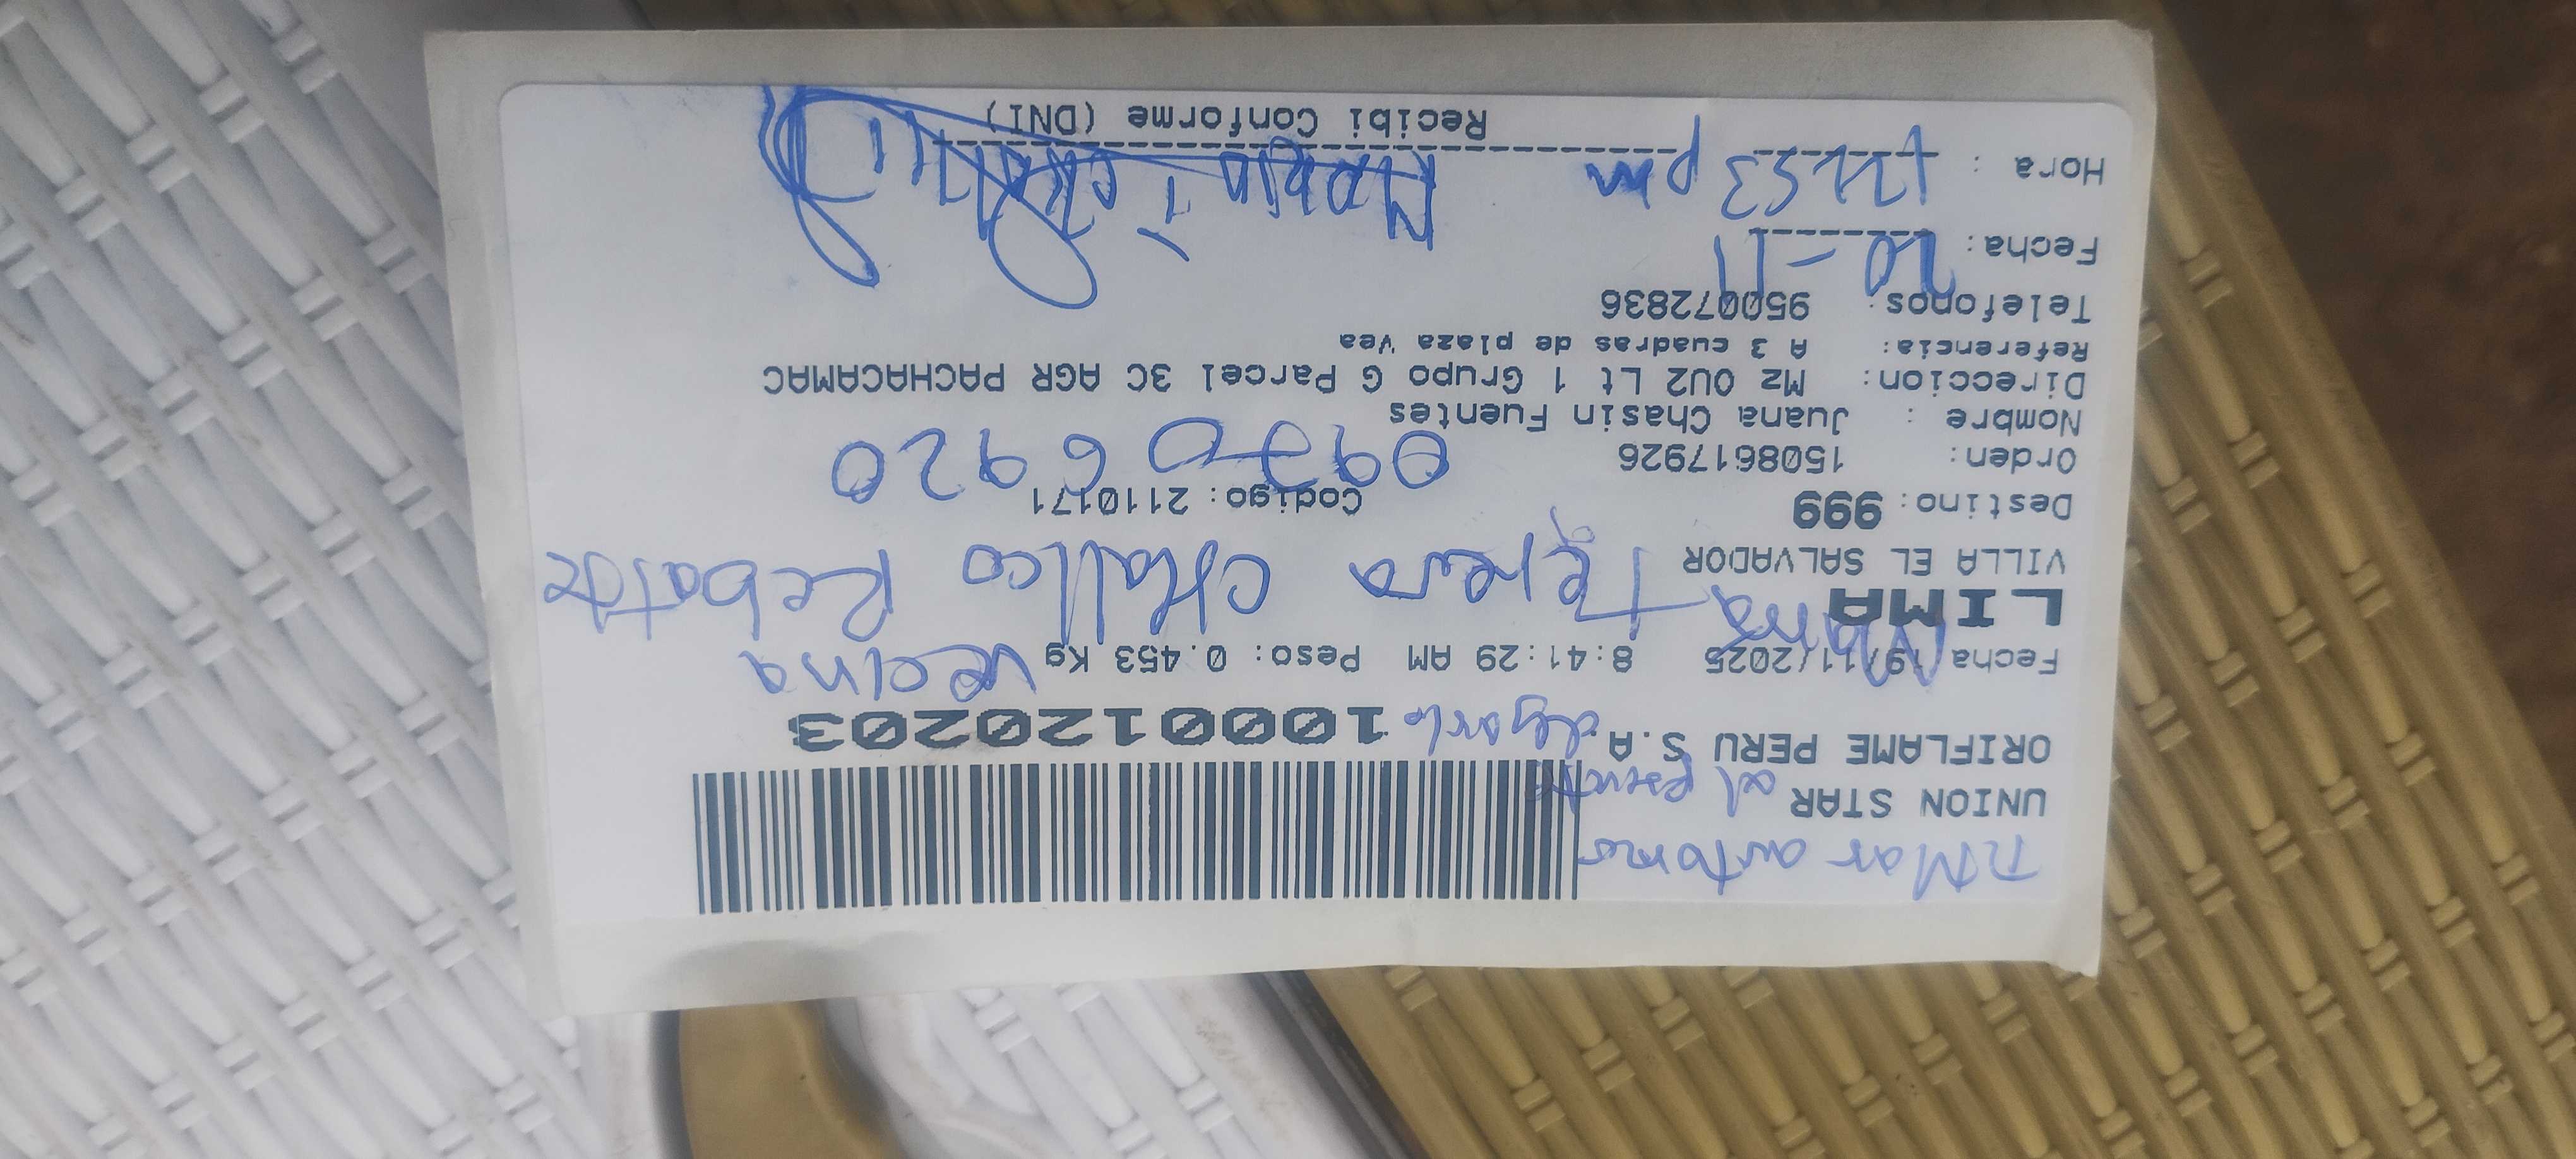 UNION STAR
ORIFLAME PERU S.A.
1000120203
vecina
Fecha 19/11/2025 8:41:29 AM Peso: 0.453 Kg
LIMA
Maria Teresa Challco Rebatta
VILLA EL SALVADOR
Destino: 999 Codigo: 2110171
Orden: 1508617926
Nombre : Juana Chasin Fuentes
Direccion: Mz OU2 Lt 1 Grupo G Parcel 3C AGR PACHACAMAC
Referencia: A 3 cuadras de plaza Vea
Telefonos: 950072836
Fecha: 20-11
Hora : 12:53 pm
Recibi Conforme (DNI)